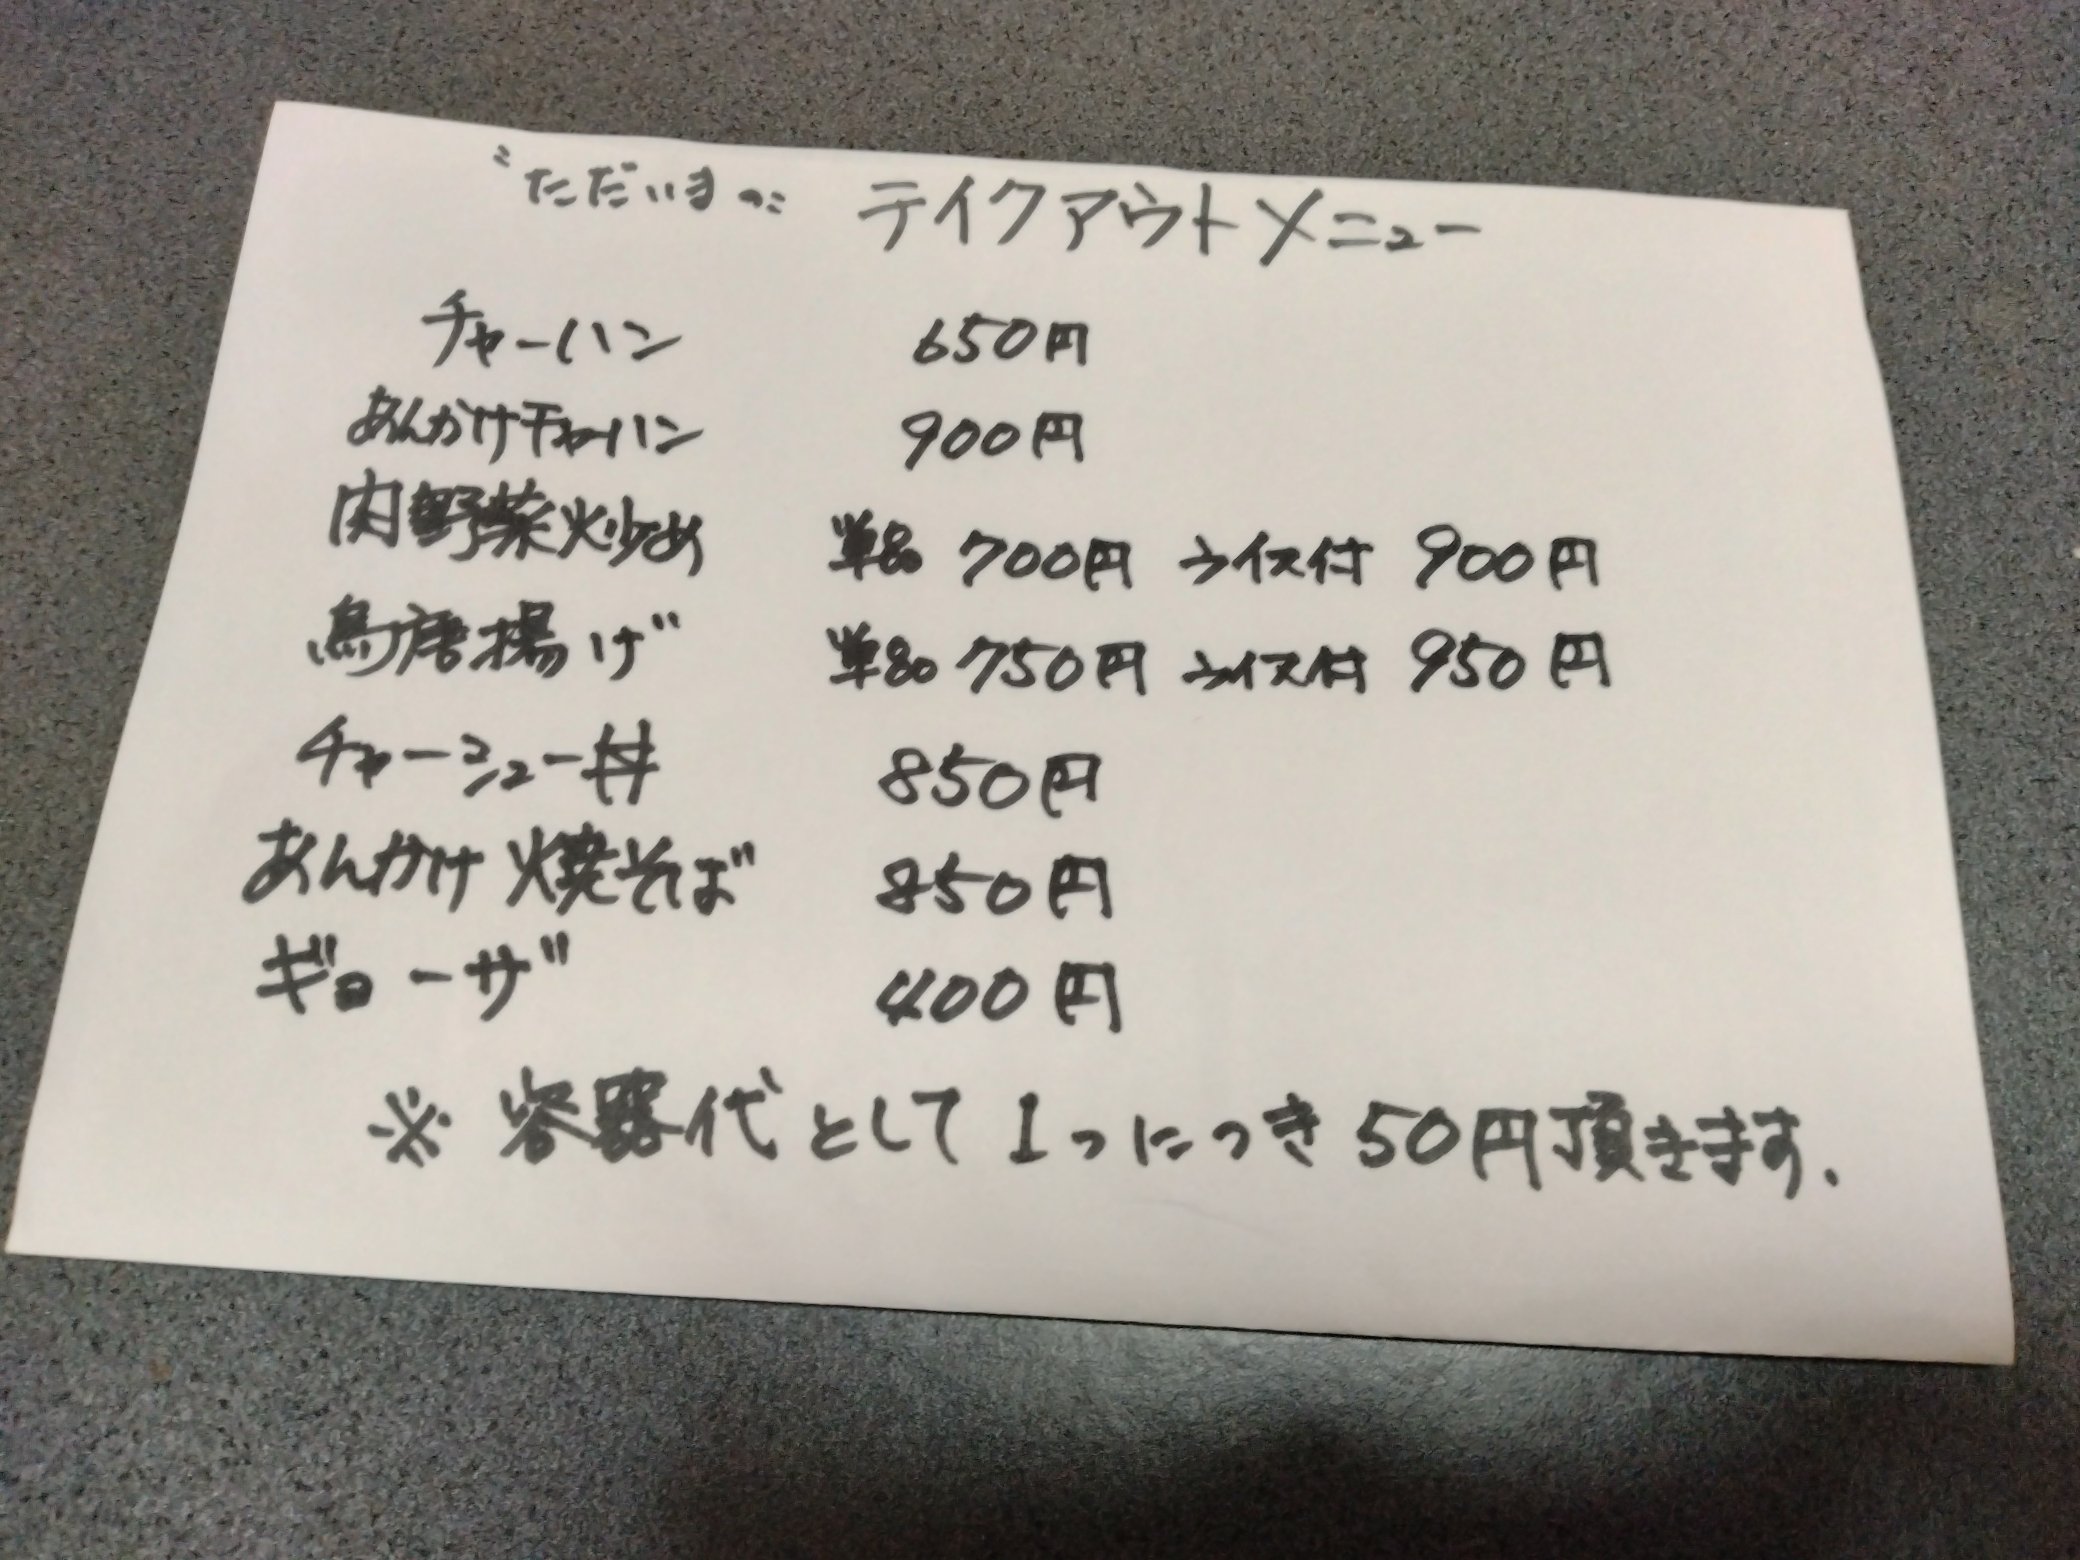 "ただいまの" テイクアウトメニュー
チャーハン 650円
あんかけチャーハン 900円
肉野菜炒め 単品 700円 ライス付 900円
鳥唐揚げ 単品 750円 ライス付 950円
チャーシュー丼 850円
あんかけ焼そば 850円
ギョーザ 400円
※ 容器代として1つにつき50円頂きます.